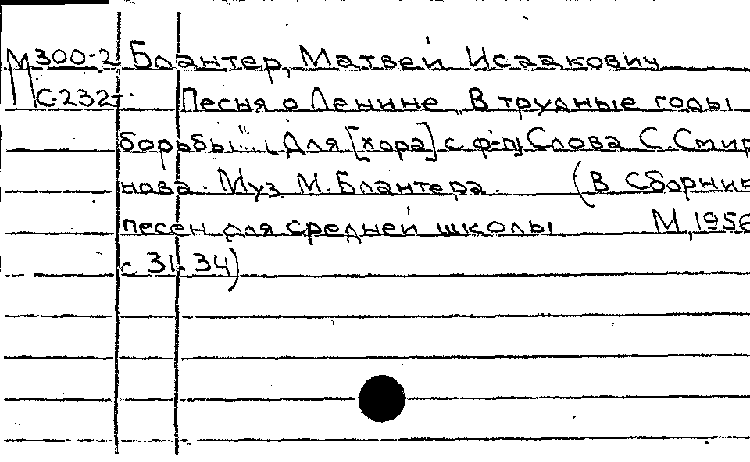 М 300-2 Блантер, Матвей Исаакович
С-232 Песня о Ленине „В трудные годы
борьбы". Для [хора] с ф-п. Слова С. Смир
нова. Муз. М. Блантера. (В Сборник
песен для средней школы М, 1956
с 31-34)